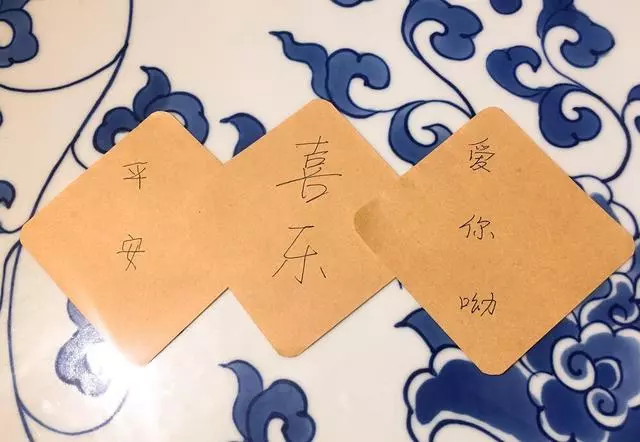 平安
喜乐
爱你呦